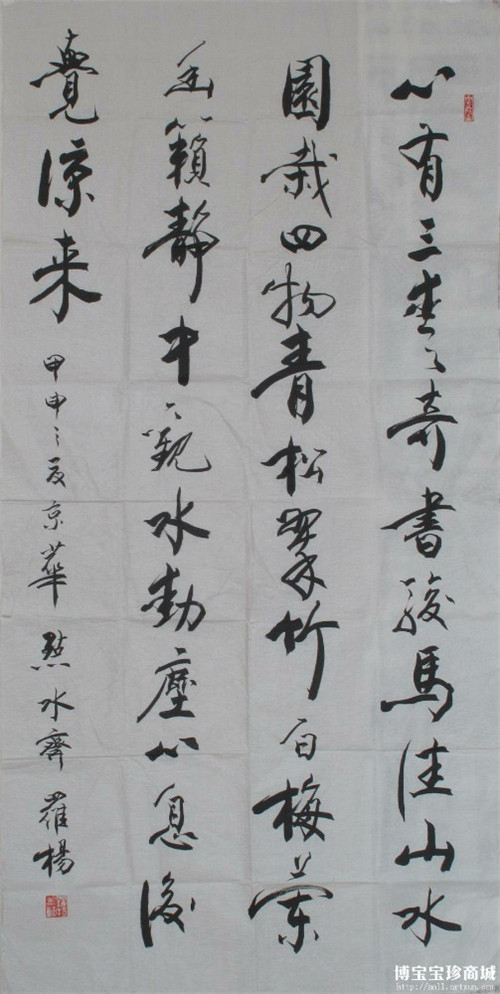 心有三爱奇書駿馬佳山水
園栽四物青松翠竹白梅蘭
萬籟靜中觀水動塵心息後
覺涼来 甲申之夏京華點水齋羅楊
博宝宝珍商城
http://mall.artxun.com